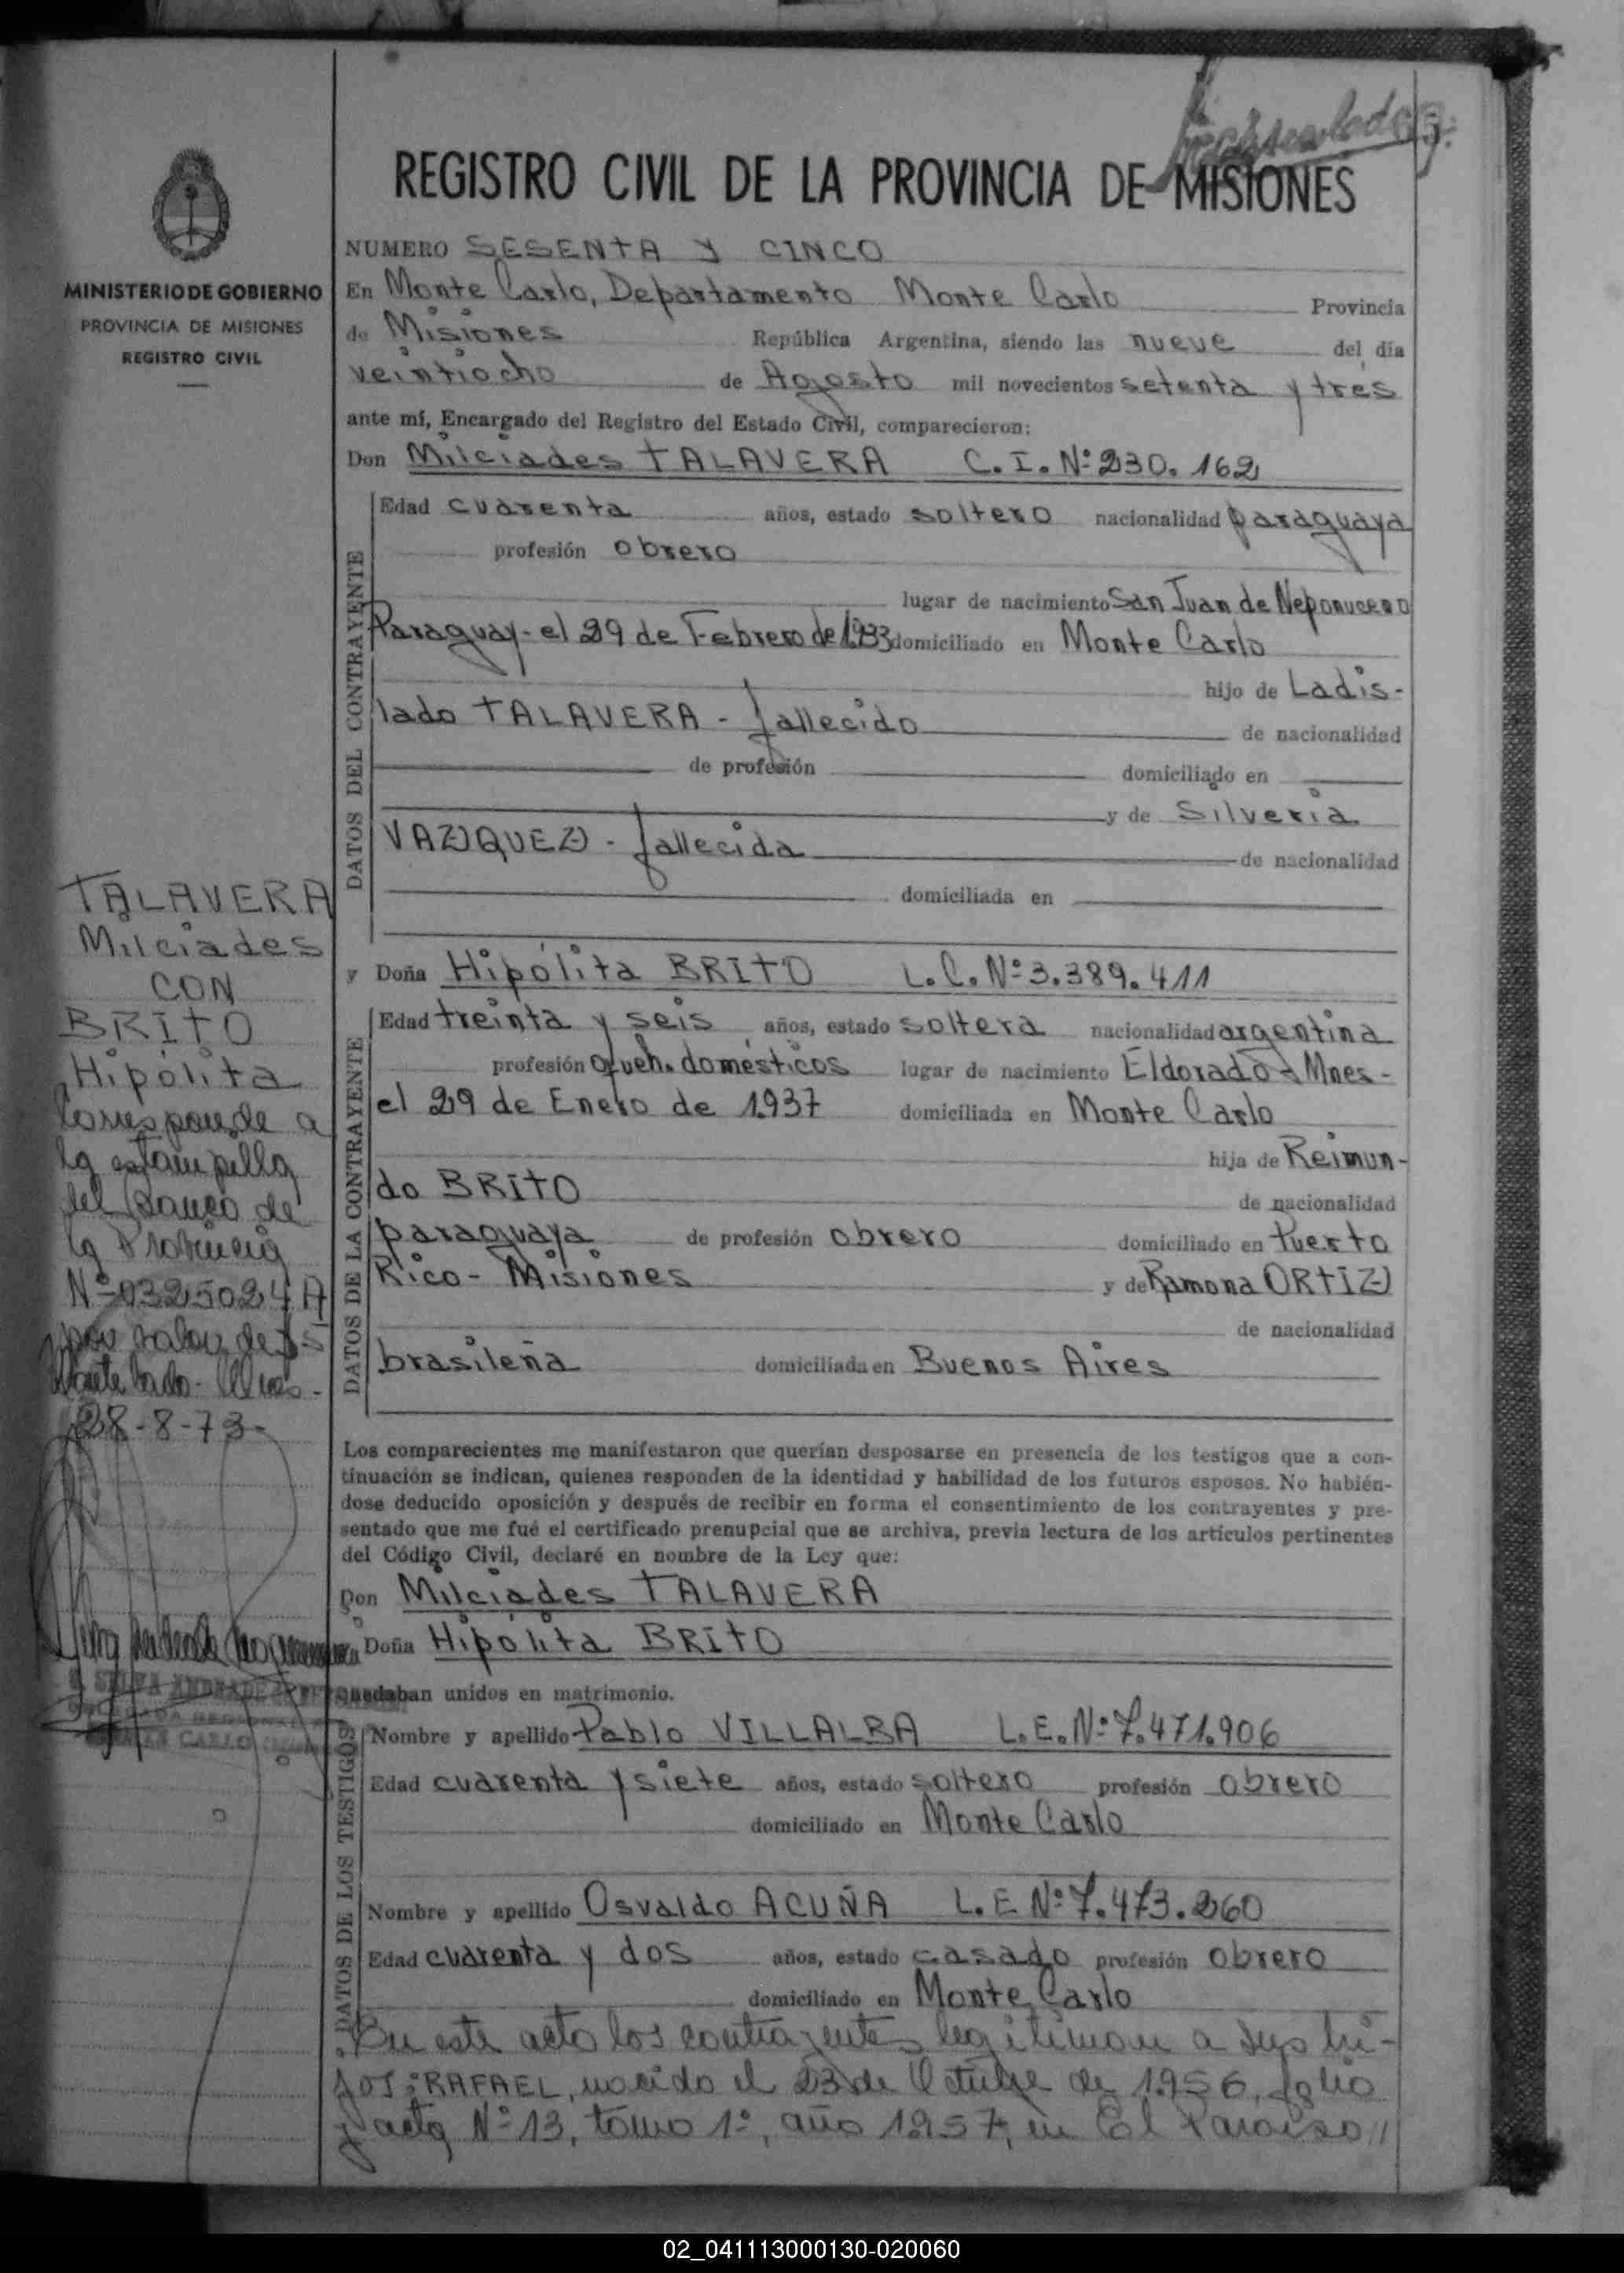 REGISTRO CIVIL DE LA PROVINCIA DE MISIONES
MINISTERIO DE GOBIERNO
PROVINCIA DE MISIONES
REGISTRO CIVIL
NUMERO SESENTA Y CINCO
En Monte Carlo, Departamento Monte Carlo Provincia
de Misiones República Argentina, siendo las nueve del día
veintiocho de Agosto mil novecientos setenta y tres
ante mí, Encargado del Registro del Estado Civil, comparecieron:
Don Milciades TALAVERA C.I. Nº 230.162
DATOS DEL CONTRAYENTE
Edad cuarenta años, estado soltero nacionalidad paraguaya
profesión obrero
lugar de nacimiento San Juan de Neponuceno
Paraguay- el 29 de Febrero de 1.933 domiciliado en Monte Carlo
hijo de Ladis-
lado TALAVERA - fallecido de nacionalidad
de profesión domiciliado en
y de Silveria
VAZQUEZ - fallecida de nacionalidad
domiciliada en
TALAVERA
Milciades
CON
BRITO
Hipólita
Corresponde a
la estampilla
del Banco de
la Provincia
Nº 0325024 A
por valor de $ 5
Monte Carlo- Mnes-
28-8-73-
y Doña Hipólita BRITO L.C. Nº 3.389.411
DATOS DE LA CONTRAYENTE
Edad treinta y seis años, estado soltera nacionalidad argentina
profesión queh. domésticos lugar de nacimiento Eldorado - Mnes-
el 29 de Enero de 1.937 domiciliada en Monte Carlo
hija de Reimun-
do BRITO de nacionalidad
paraguaya de profesión obrero domiciliado en Puerto
Rico- Misiones y de Ramona ORTIZ
de nacionalidad
brasileña domiciliada en Buenos Aires
Los comparecientes me manifestaron que querían desposarse en presencia de los testigos que a con-
tinuación se indican, quienes responden de la identidad y habilidad de los futuros esposos. No habién-
dose deducido oposición y después de recibir en forma el consentimiento de los contrayentes y pre-
sentado que me fué el certificado prenupcial que se archiva, previa lectura de los artículos pertinentes
del Código Civil, declaré en nombre de la Ley que:
Don Milciades TALAVERA
Doña Hipólita BRITO
quedaban unidos en matrimonio.
DATOS DE LOS TESTIGOS
Nombre y apellido Pablo VILLALBA L.E. Nº 7.471.906
Edad cuarenta y siete años, estado soltero profesión obrero
domiciliado en Monte Carlo
Nombre y apellido Osvaldo ACUÑA L.E Nº 7.473.260
Edad cuarenta y dos años, estado casado profesión obrero
domiciliado en Monte Carlo
En este acto los contrayentes legitiman a sus hi-
jos: RAFAEL, nacido el 23 de Octubre de 1.956, folio
y acta Nº 13, tomo 1º, año 1957, en El Paraíso //
02_041113000130-020060